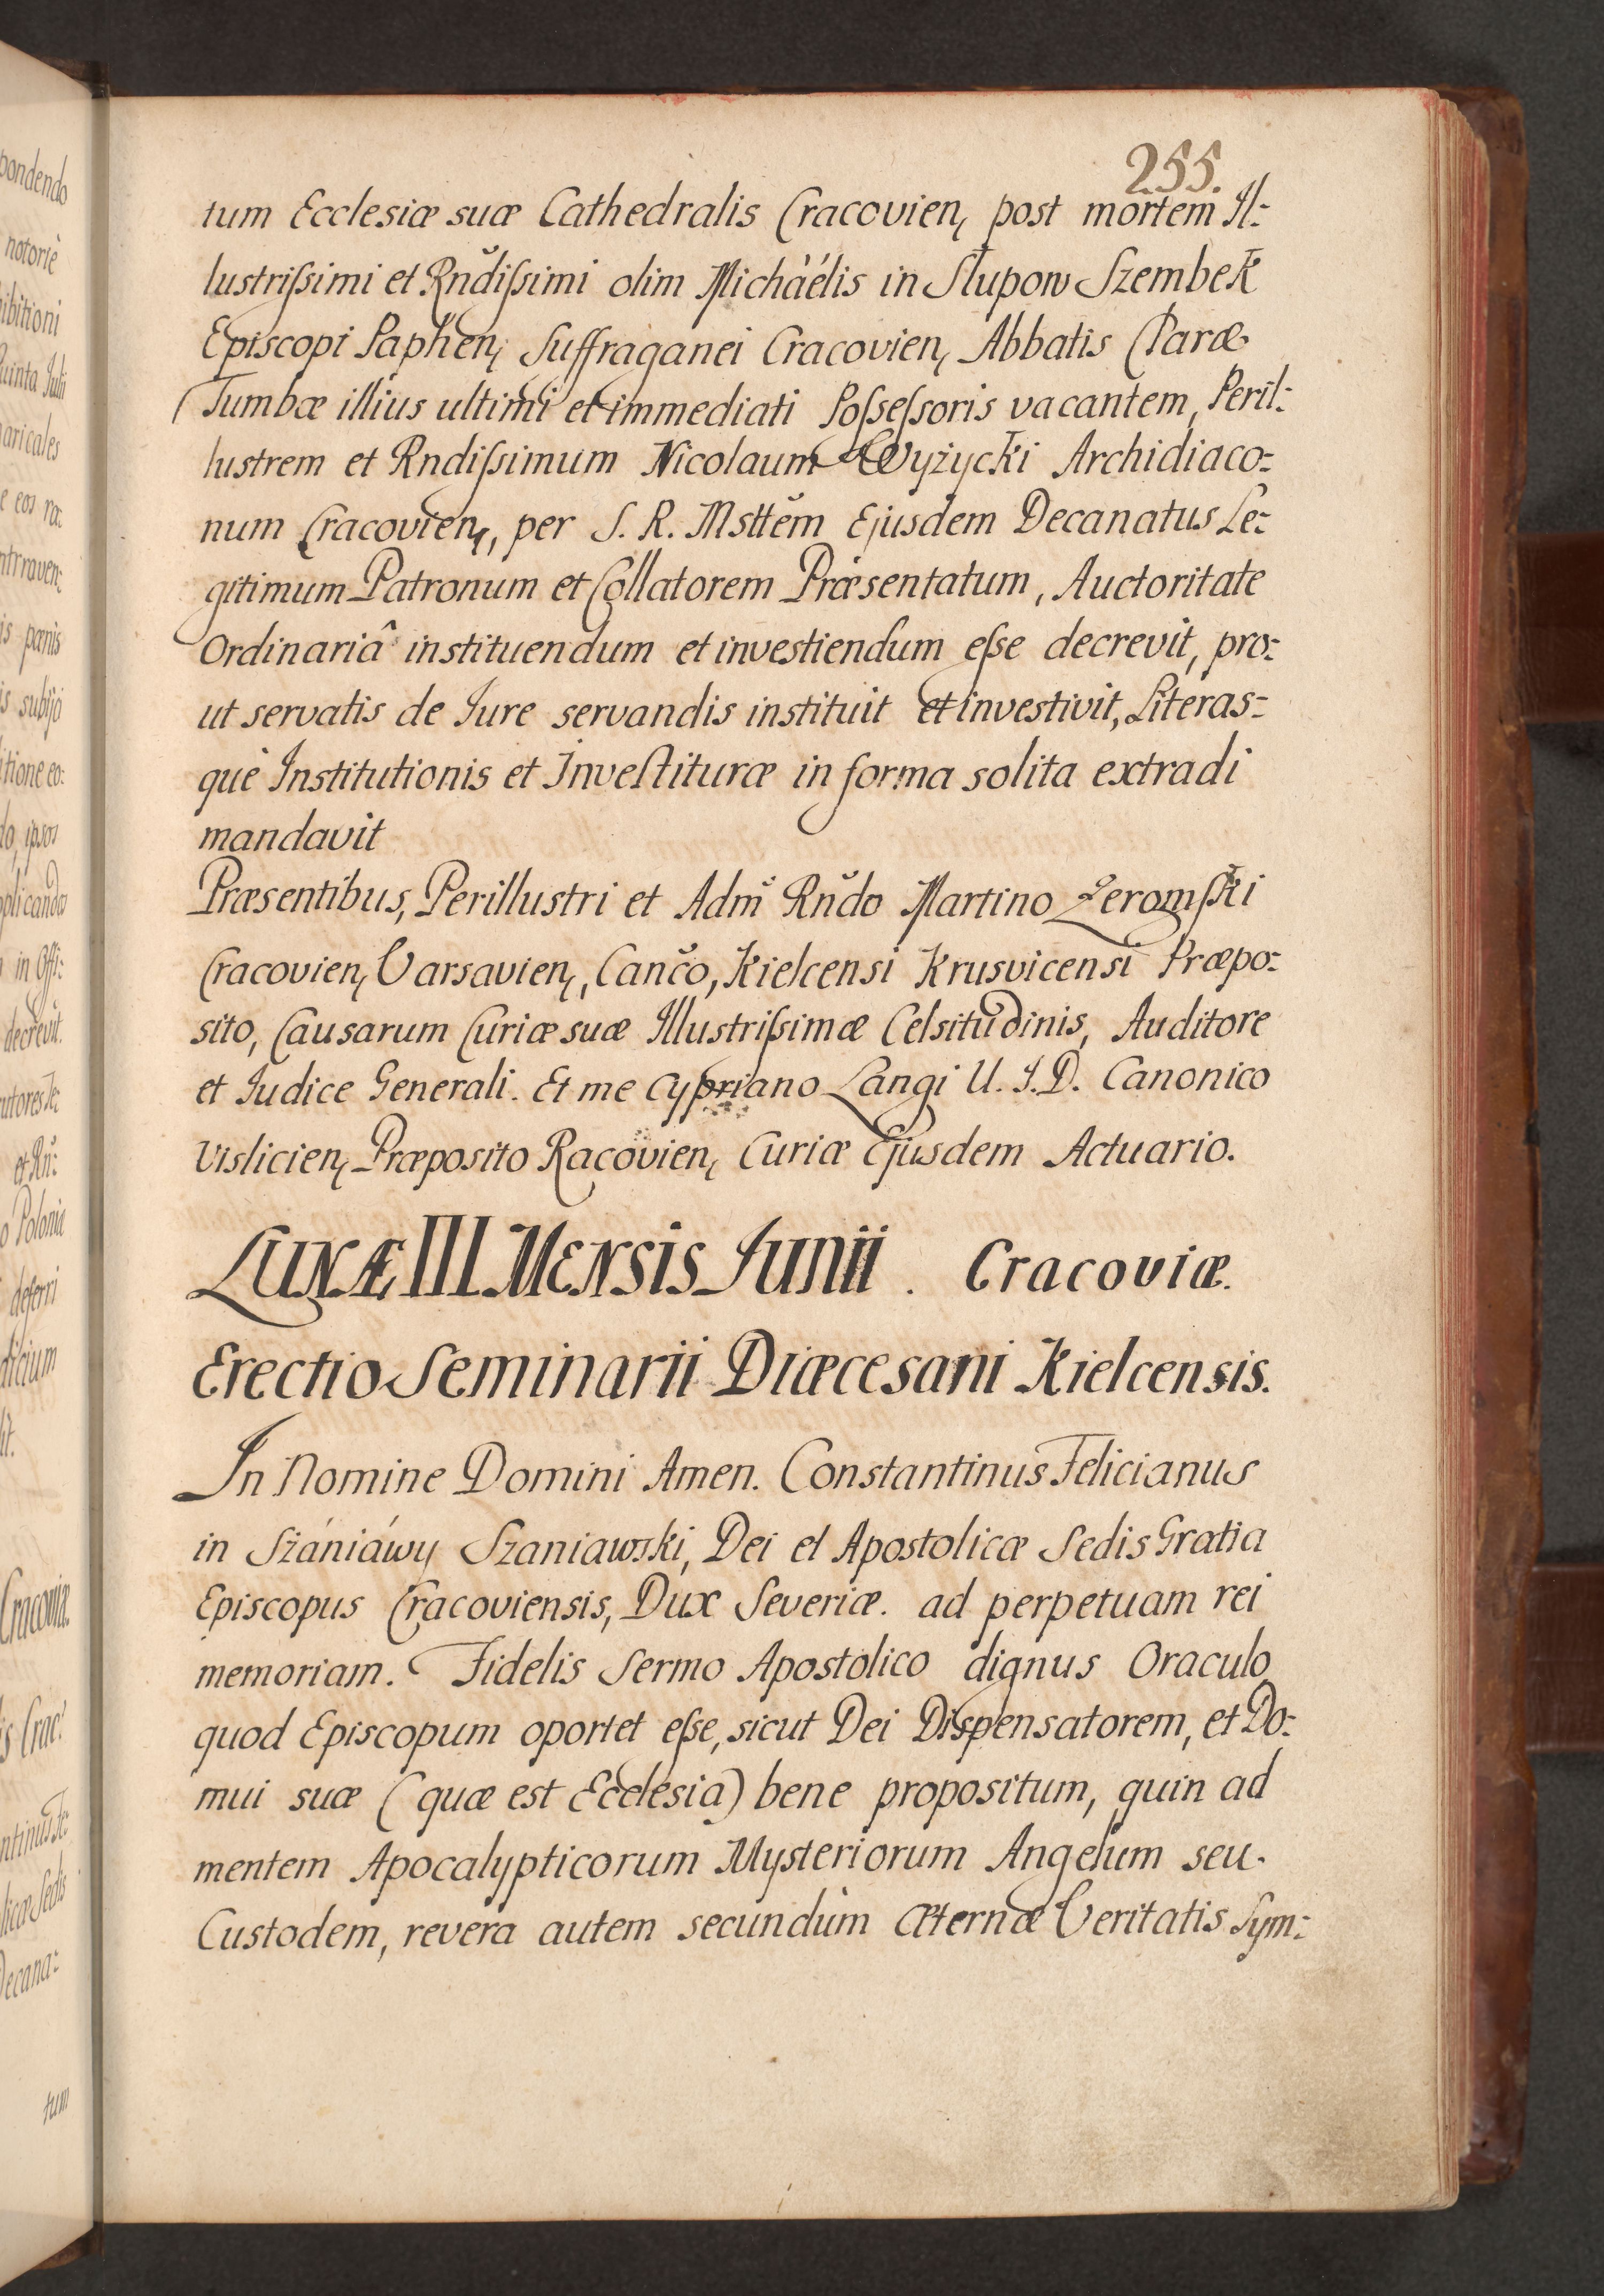 255.
tum Ecclesiæ suæ Cathedralis Cracovien, post mortem Il:
lustrißimi et Rndĭßimi olim Michàélis in Słupow Szembek
Episcopi Paphen, Suffraganei Cracovien, Abbatis Claræ
Tumbæ illius ultimi et immediati Poßeßoris vacantem, Peril:
lustrem et Rndißimum Nicolaum Wyżycki Archidiaco:
num Cracovien, per S. R. Msttĕm Ejusdem Decanatus Le:
gitimum Patronum et Collatorem Præsentatum, Auctoritate
Ordinariâ instituendum et investiendum eße decrevit, pro:
ut servatis de Iure servandis instituit et investivit, Literas:
què Institutionis et Investituræ in forma solita extradi
mandavit
Præsentibus, Perillustri et Adm̆ Rn̆do Martino Żeromski
Cracovien, Varsavien, Canc̆o, Kielcensi Krusvicensi Præpo:
sito, Causarum Curiæ suæ Illustrißimæ Celsitudinis, Auditore
et Iudice Generali. Et me Cypriano Langi U. I. D. Canonico
Vislicien, Præposito Racovien, Curiæ Ejusdem Actuario.
LUNÆ III MENSIS Junii . Cracoviæ.
Erectio Seminarii Diæcesani Kielcensis.
In Nomine Domini Amen. Constantinus Felicianus
in Szániáwy Szaniawski, Dei et Apostolicæ Sedis Gratia
Episcopus Cracoviensis, Dux Severiæ. ad perpetuam rei
memoriam. Fidelis Sermo Apostolico dignus Oraculo
quod Episcopum oportet eße, sicut Dei Dispensatorem, et Do:
mui suæ (quæ est Ecclesia) bene propositum, quin ad
mentem Apocalypticorum Mysteriorum Angelum seu
Custodem, revera autem secundùm æternæ Veritatis Sym: